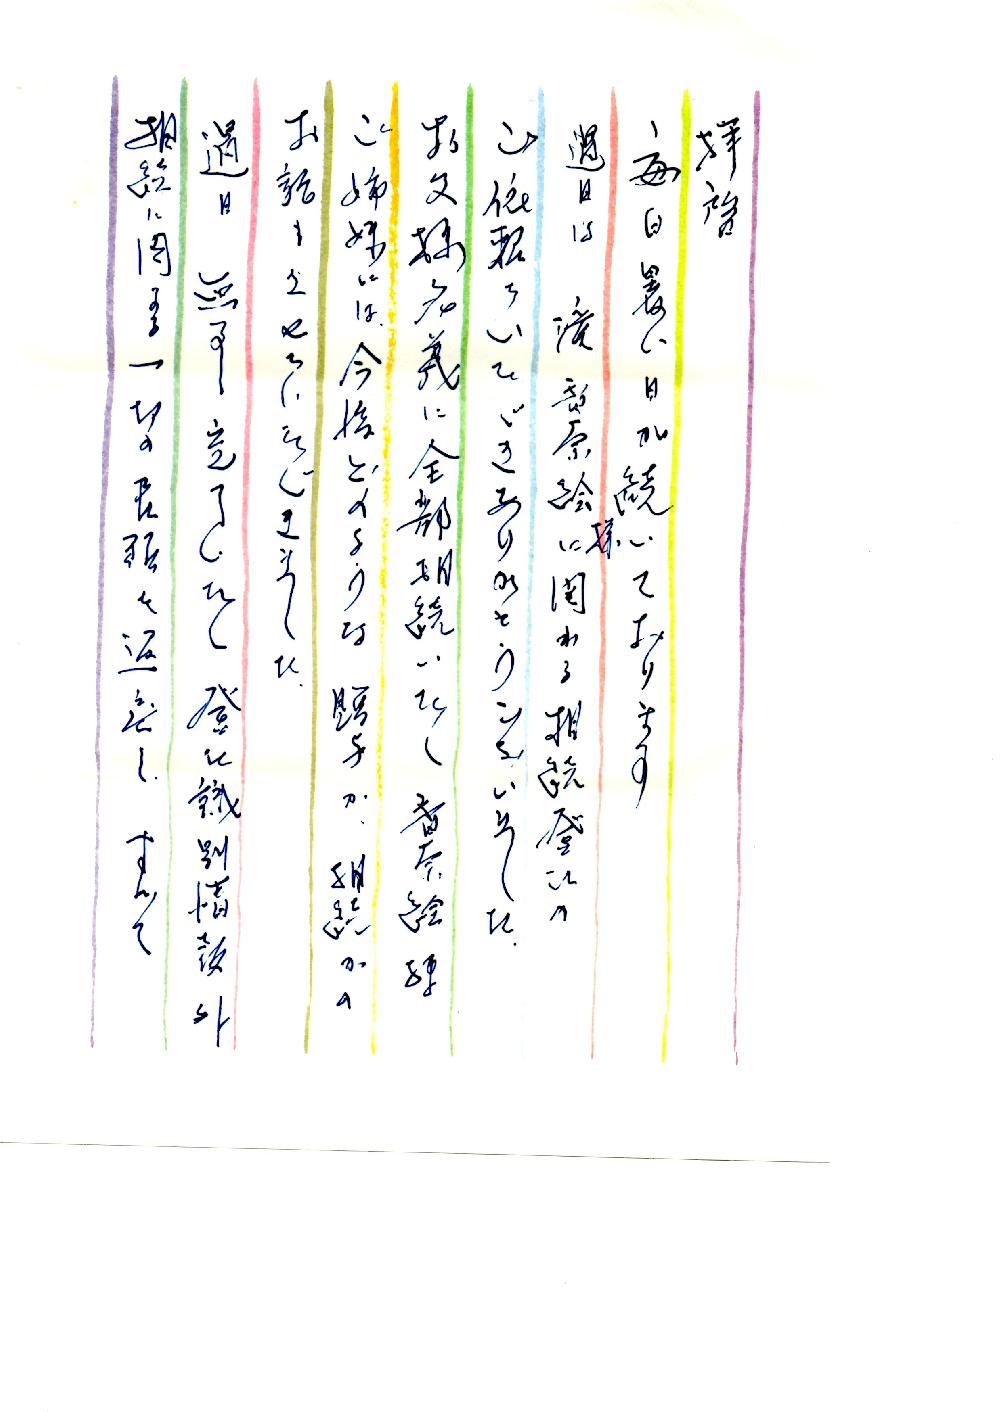 拝啓
毎日暑い日が続いております
過日は 濱 香奈絵様に関わる相続登記の
ご依頼をいただきありがとうございました。
お父様名義に全部相続いたし 香奈絵様
ご姉妹には、今後どのような 贈与か、相続かの
お話もさせていただきました。
過日 無事 完了いたし 登記識別情報外
相続に関する一切の書類を返却し、すべて